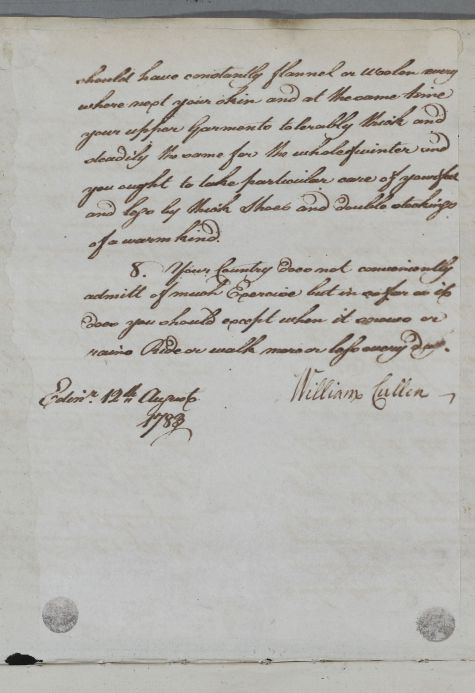 should have constantly flannel or woolen every
where next your skin and at the same time
your upper Garments tolerably thick and
steadily the same for the whole of winter and
you ought to take particular care of your feet
and legs by thick Shoes and double stockings
of a warm kind.
8. Your Country does not conveniently
admitt of much Exercise but in so far as it
does you should except when it snows or
rains Ride or walk more or less every day.
Edinr. 12th August William Cullen
1783